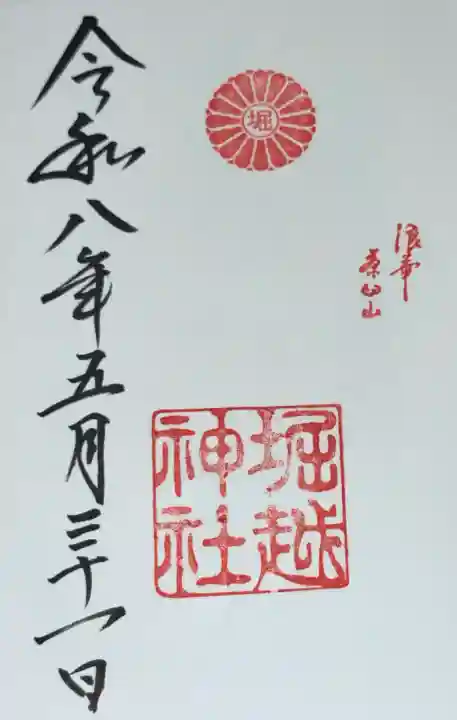 浪華
茶臼山
堀
堀越
神社
令和八年五月三十一日